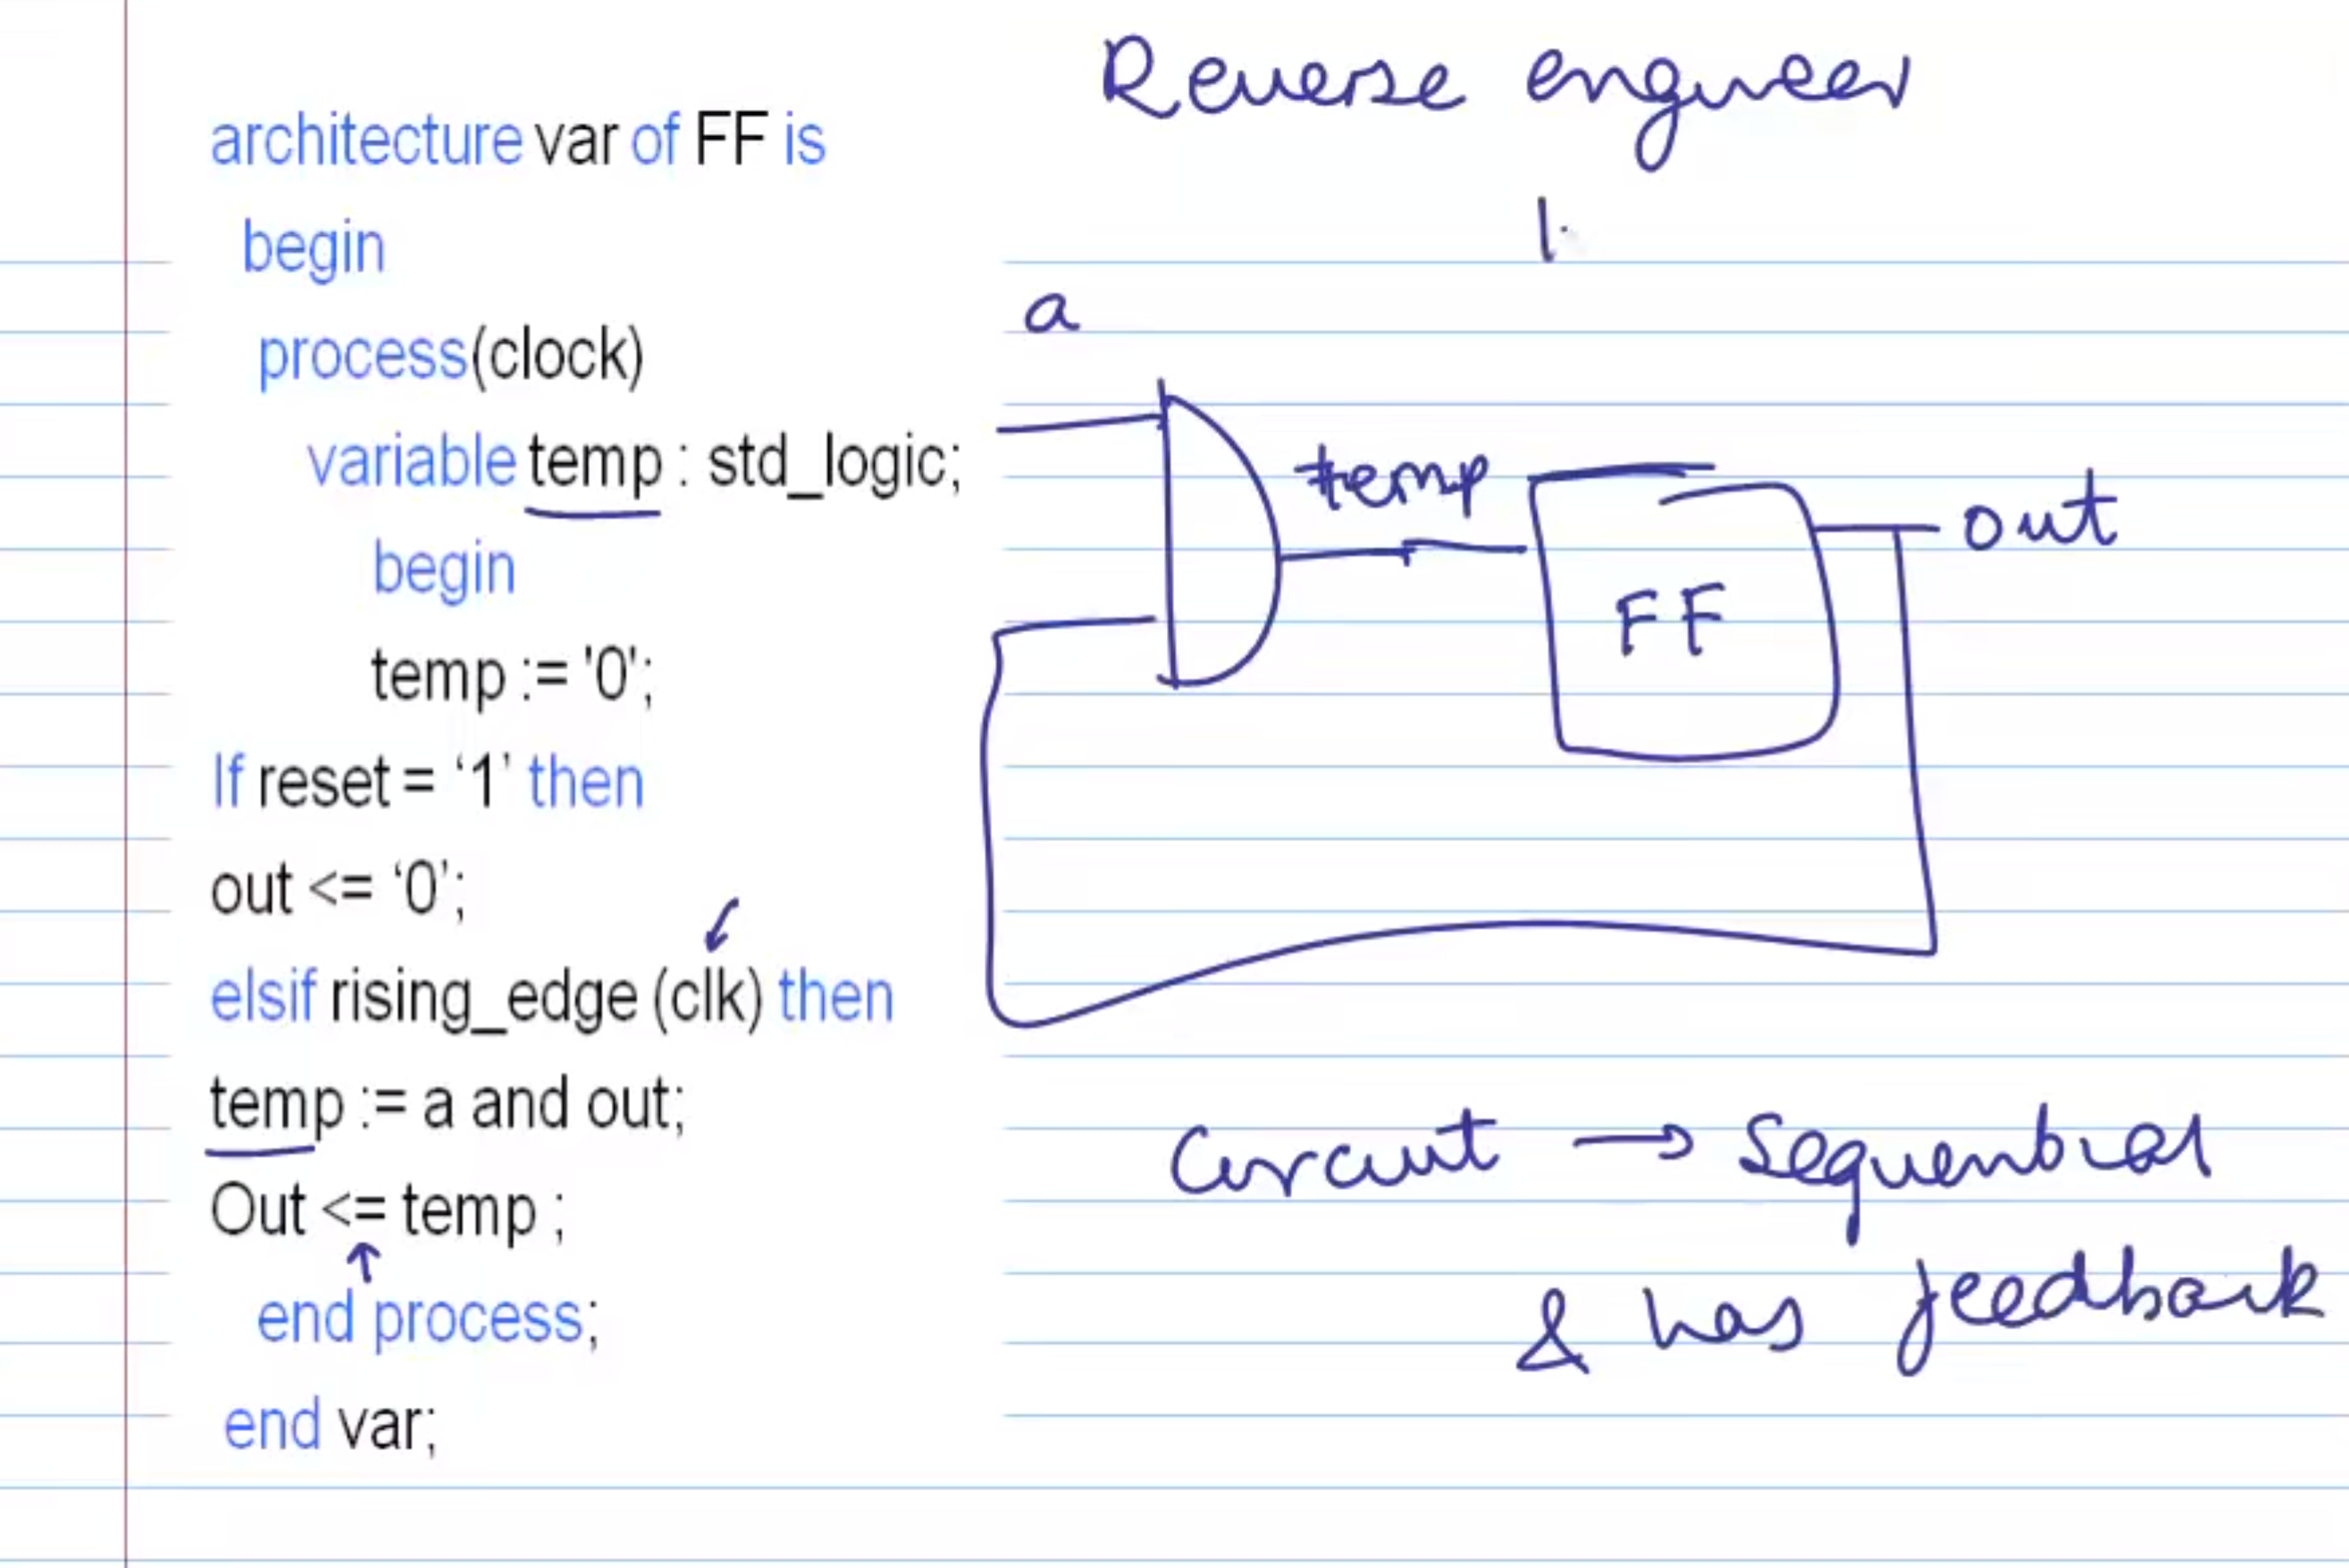 architecture var of FF is
begin
process(clock)
variable temp : std_logic;
begin
temp := '0';
If reset = ‘1’ then
out <= ‘0’;
elsif rising_edge (clk) then
temp := a and out;
Out <= temp ;
end process;
end var;
Reverse engineer
a
temp
FF
out
Circuit → Sequential
& has feedback